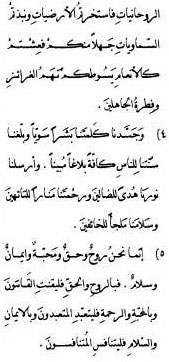 الروحانيات فاستخرتم الأرضيات ونبذتم
السماويات جهلاً منكم فعشتم
كالأنعام يسوطكم نهم الغرائز
وفطرة الجاهلين .
٤) وجسدنا كلمتنا بشراً سوياً وبلغنا
سنتنا للناس كافة بلاغاً مبيناً . وأرسلنا
نورنا هدىً للضالين ورحمتنا مناراً للتائهين
وسلامنا ملجأً للخائفين .
٥) إنما نحن روح وحق ومحبة وإيمان
وسلام . فبالروح والحق فليقنت القانتون
وبالمحبة والرحمة فليتعبد المتعبدون وبالإيمان
والسلام فليتنافس المتنافسون .